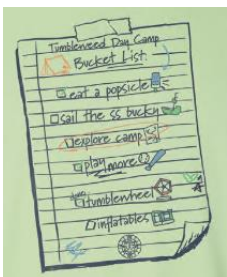 Tumbleweed Day Camp
Bucket List:
eat a popsicle
sail the ss bucky
explore camp
play more
tumblewheel
inflatables